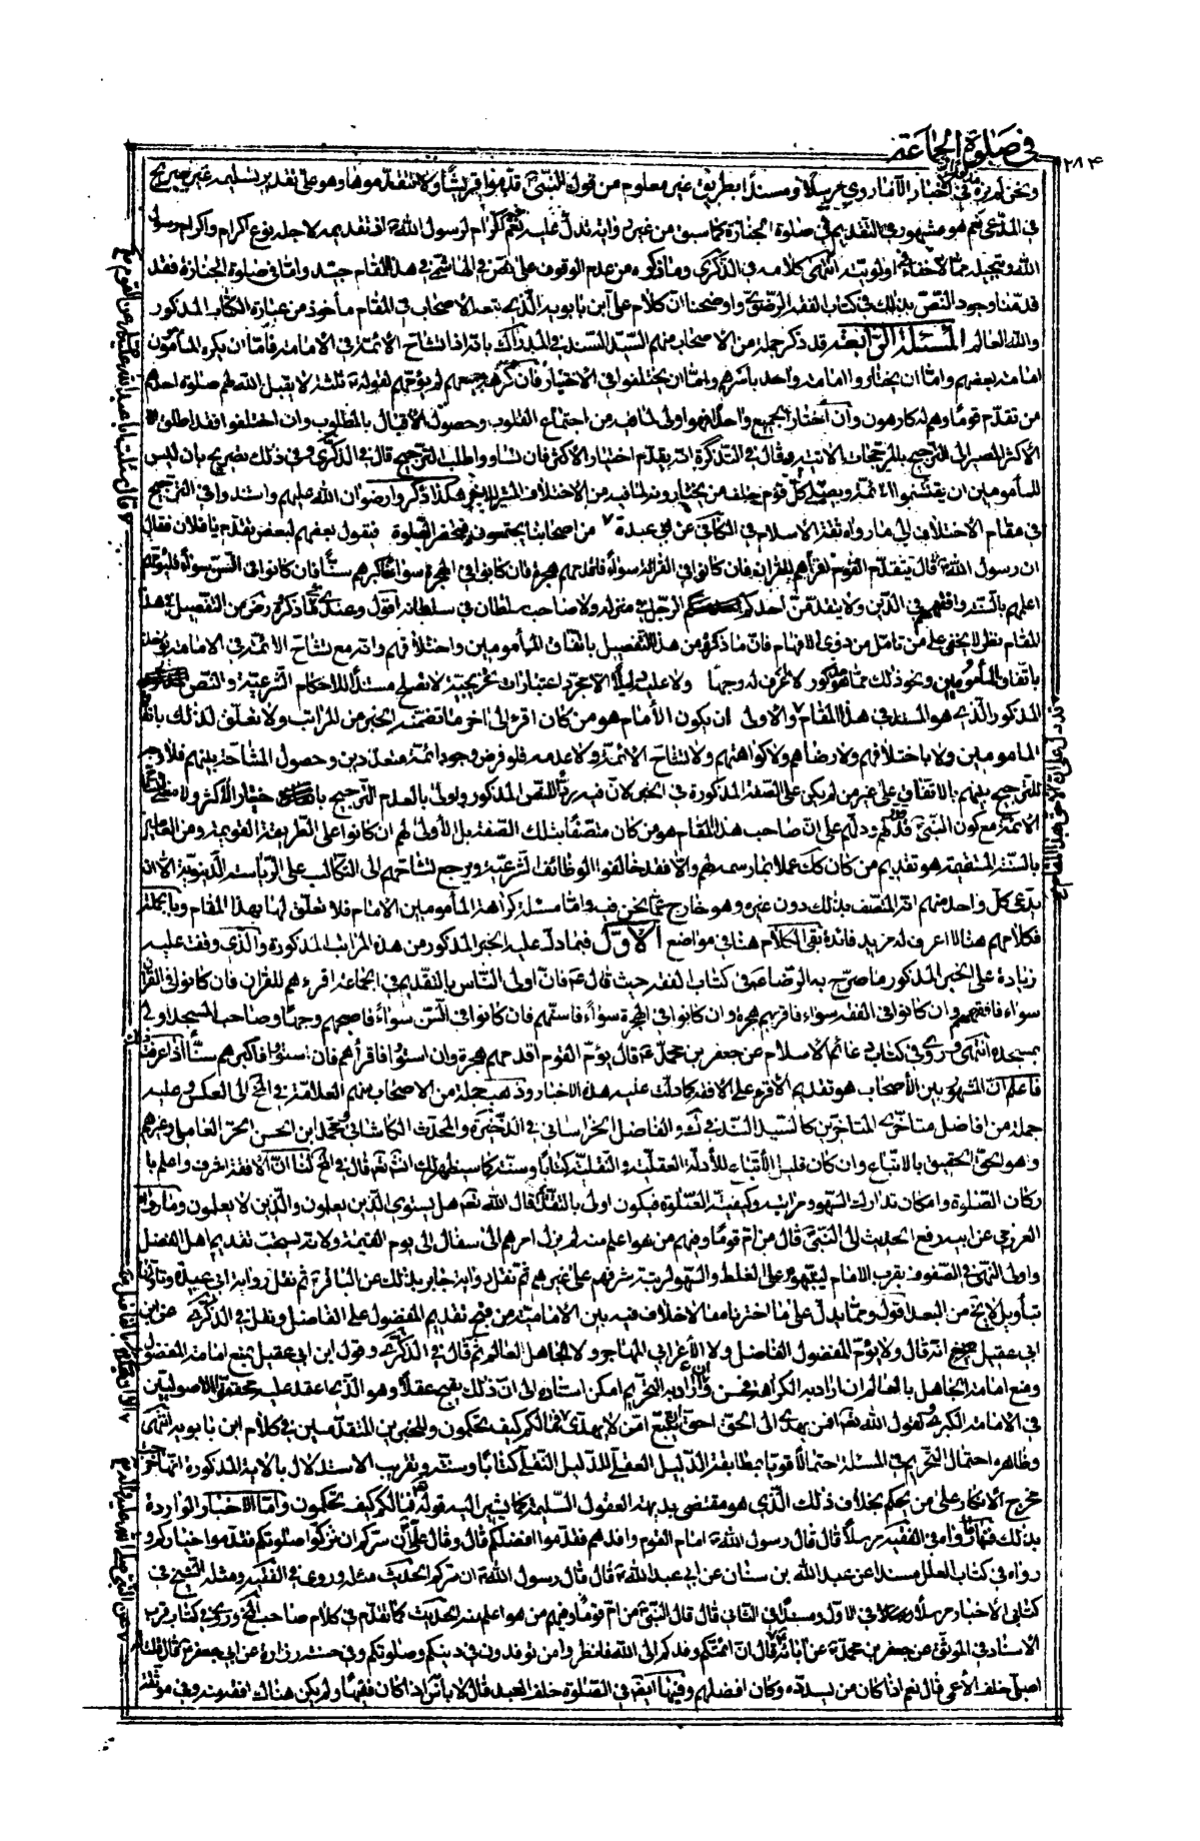 في صلوة الجماعة
٢٨۴
ونحن لم نره في اخبارنا الا ما روي مرسلا او مسندا بطريق غير معلوم من قول النبي قدموا قريشا ولا تقدموها وهو على تقدير تسليمه غير صريح
في المدعى نعم هو مشهور في التقديم في صلوة الجنازة كما سبق من غير رواية تدل عليه نعم فيه اكرام لرسول الله اذ تقديمه لاجله نوع اكرام واكرام رسول
الله وتبجيله مما لا خفاء في اولويته انتهى كلامه في الذكرى وما ذكره من عدم الوقوف على نص في الهاشمي في هذا المقام جيد واما في صلوة الجنازة فقد
قدمنا وجود النص بذلك في كتاب الفقه الرضوي واوضحنا ان كلام علي ابن بابويه الذي تبعه الاصحاب في المقام مأخوذ من عبارة الكتاب المذكور
والله العالم المسئلة الرابعة قد ذكر جملة من الاصحاب منهم السيد السند في المدارك بانه اذا تشاح الائمة في الامامة فاما ان يكره المأمون
امامة بعضهم واما ان يختاروا امامة واحد باسرهم واما ان يختلفوا في الاختيار فان كرهه جميعهم لم يؤمهم لقوله ثلثة لا يقبل الله لهم صلوة احدهم
من تقدم قوما وهم له كارهون وان اختار الجميع واحدا فهو اولى لما فيه من اجتماع القلوب وحصول الاقبال بالمطلوب وان اختلفوا فقد اطلق
الاكثر المصير الى الترجيح بالمرجحات الاتية وقال في التذكرة انه يقدم اختيار الاكثر فان تساووا طلب الترجيح قال في الذكرى وفي ذلك تصريح بان ليس
للمأمومين ان يقتسموا الائمة ويصلي كل قوم خلف من يختارونه لما فيه من الاختلاف المثير للاحن هكذا ذكروا رضوان الله عليهم واستدلوا في الترجيح
في مقام الاختلاف الى ما رواه ثقة الاسلام في الكافي عن ابي عبيدة من اصحابنا يجتمعون فتحضر الصلوة فيقول بعضهم لبعض تقدم يا فلان فقال
ان رسول الله قال يتقدم القوم اقرأهم للقران فان كانوا في القرائة سواء فاقدمهم هجرة فان كانوا في الهجرة سواء فاكبرهم سنا فان كانوا في السن سواء فليؤمهم
اعلمهم بالسنة وافقههم في الدين ولا يتقدمن احدكم الرجل في منزله ولا صاحب سلطان في سلطانه اقول وعندي فيما ذكروه من التفصيل في هذا
المقام نظر لا يخفى على من تأمل من ذوي الافهام فان ما ذكروه من هذا التفصيل باتفاق المأمومين واختلافهم وانه مع تشاح الائمة في الامامة يؤخذ
باتفاق المأمومين ونحو ذلك مما هو مذكور لا اعرف له وجها ولا عليه دليلا الا مجرد اعتبارات تخريجية لا تصلح مستندا للاحكام الشرعية والنص
المذكور الذي هو المستند في هذا المقام والاولى ان يكون الامام هو من كان اقرء الى اخر ما تضمنه الخبر من المراتب ولا تعلق لذلك باتفاق
المامومين ولا باختلافهم ولا رضاهم ولا كراهتهم ولا تشاح الائمة ولا عدمه فلو فرض وجود ائمة متعددين وحصول المشاحة بينهم فلا وجه
للترجيح بينهم بالاتفاق على غير من لم يكن على الصفة المذكورة في الخبر لان فيه ردا للنص المذكور واولى بالعدم الترجيح باختيار الاكثر ولا معنى لتشاح
الائمة مع كون النبي قد ذكرهم ودلهم على ان صاحب هذا المقام هو من كان متصفا بتلك الصفة بل الاولى لهم ان كانوا على الطريقة القويمة ومن العاملين
بالسنة المستقيمة هو تقديم من كان كك عملا بما رسمه لهم والا فقد خالفوا الوظائف الشرعية ويرجع تشاحهم الى التكالب على الرياسة الدنيوية الا ان
يدعي كل واحد منهم انه المتصف بذلك دون غيره وهو خارج عما نحن فيه واما مسئلة كراهة المأمومين الامام فلا تعلق لها بهذا المقام وبالجملة
فكلامهم هنا لا اعرف له مزيد فائدة بقي الكلام هنا في مواضع الاول فيما دل عليه الخبر المذكور من هذه المراتب المذكورة والذي وقفت عليه
زيادة على الخبر المذكور ما صرح به الرضا في كتاب الفقه حيث قال ان اولى الناس بالتقديم في الجماعة اقرءهم للقران فان كانوا في القران
سواء فافقههم وان كانوا في الفقه سواء فاقربهم هجرة وان كانوا في الهجرة سواء فاسنهم فان كانوا في السن سواء فاصبحهم وجها وصاحب المسجد اولى
بمسجده انتهى وروى في كتاب دعائم الاسلام عن جعفر بن محمد قال يؤم القوم اقدمهم هجرة وان استووا فاقرأهم فان استووا فافقههم فان استووا فاكبرهم سنا اذا عرفت ذلك
فاعلم ان المشهور بين الاصحاب هو تقديم الاقرء على الافقه كما دلت عليه هذه الاخبار وذهب جملة من الاصحاب منهم العلامة في المخ الى العكس وعليه
جملة من افاضل متأخري المتاخرين كالسيد السند في ك والفاضل الخراساني في الذخيرة والمحدث الكاشاني ومحمد ابن الحسن الحر العاملي وغيرهم
وهو الحق الحقيق بالاتباع وان كان قليل الاتباع للأدلة العقلية والنقلية كتابا وسنة كما سيظهر لك انشاء الله تعالى قال في المخ لنا ان الافقه اشرف واعلم با
ركان الصلوة وامكان تدارك السهو ومراتبه وكيفية الصلوة فيكون اولى بالتقديم قال الله تعالى هل يستوي الذين يعلمون والذين لا يعلمون وما رواه
العرزمي عن ابيه رفع الحديث الى النبي قال من ام قوما وفيهم من هو اعلم منه لم يزل امرهم الى سفال الى يوم القيمة ولانه يستحب تقديم اهل الفضل
واولي النهى في الصفوف بقرب الامام لينبهوه على الغلط والسهو لمزية شرفهم على غيرهم ثم نقل رواية جابر بذلك عن الباقر ثم نقل رواية ابي عبيدة وتاولها
بتأويل لا يخ من البعد اقول ومما يدل على ما اخترناه ما لا خلاف فيه بين الامامية من قبح تقديم المفضول على الفاضل ونقل في الذكرى عن ابن
ابي عقيل انه قال ولا يؤم المفضول الفاضل ولا الأعرابي المهاجر ولا الجاهل العالم ثم قال في الذكرى وقول ابن ابي عقيل بمنع امامة المفضول
ومنع امامة الجاهل بالعالم ان اراد به الكراهة فحسن وان اراد به التحريم امكن استناده الى ان ذلك يقبح عقلا وهو الذي اعتمد عليه محققوا الاصوليين
في الامامة الكبرى لقول الله تعالى افمن يهدي الى الحق احق ان يتبع امن لا يهدي فما لكم كيف تحكمون ولخبرين المتقدمين في كلام ابن بابويه انتهى
وظاهره احتمال التحريم في المسئلة احتمالا قويا بمطابقة الدليل العقلي للدليل النقلي كتابا وسنة وتقريب الاستدلال بالاية المذكورة انها خرجت
مخرج الانكار على من يحكم بخلاف ذلك الذي هو مقتضى بديهة العقول السليمة كما يشير اليه قوله فما لكم كيف تحكمون واما الاخبار الواردة
بذلك فمنها ما رواه في الفقيه مرسلا قال قال رسول الله امام القوم وافدهم فقدموا افضلكم قال وقال علي ان سركم ان تزكوا صلوتكم فقدموا خياركم و
رواه في كتاب العلل مسندا عن عبد الله بن سنان عن ابي عبد الله قال قال رسول الله ان سركم الحديث مثله وروى في الفقيه ومثله الشيخ في
كتابي الاخبار مرسلا في الاول ومسندا في الثاني قال قال النبي من ام قوما وفيهم من هو اعلم منه الحديث كما تقدم في كلام صاحب المخ وروى في كتاب قرب
الاسناد في الموثق عن جعفر بن محمد عن آبائه قال ان ائمتكم وفدكم الى الله فانظروا من توفدون في دينكم وصلوتكم وفي حسنة زرارة عن ابي جعفر قال قلت
اصلي خلف الاعمى قال نعم اذا كان من يسدده وكان افضلهم وفيها ايضا في الصلوة خلف العبد قال لا باس اذا كان فقيها ولم يكن هناك افقه منه وفي موثقة